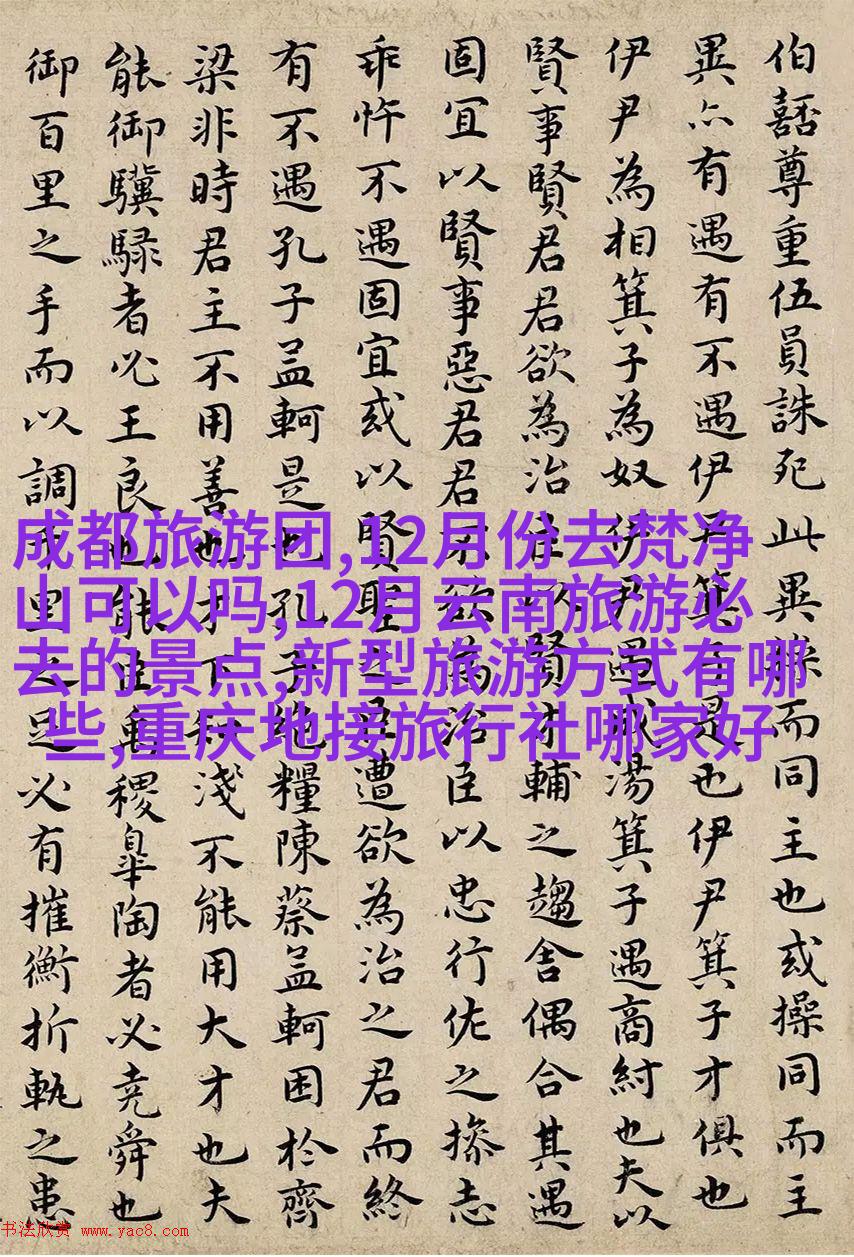 伯嚭尊重伍員誅死此異操而同主也或操同而主
異亦有遇有不遇伊尹箕子是也伊尹箕子才俱也
伊尹為相箕子為奴伊尹遇成湯箕子遇商紂也夫以
賢事賢君君欲為治臣以賢才輔之趨舍偶合其遇
固宜以賢事惡君君不欲為治臣以忠行佐之操志
乖忤不遇固宜或以賢聖之臣遭欲為治之君而終
有不遇孔子孟軻是也孔子絕糧陳蔡孟軻困於齊
梁非時君主不用善也才下知淺不能用大才也夫
能御驥騄者必王良也能臣禹稷皋陶者必堯舜也
御百里之手而以調千里之足必有摧衡折軛之患
成都旅游团,12月份去梵净
山可以吗,12月云南旅游必
去的景点,新型旅游方式有哪
些,重庆地接旅行社哪家好
书法欣赏 www.yac8.com